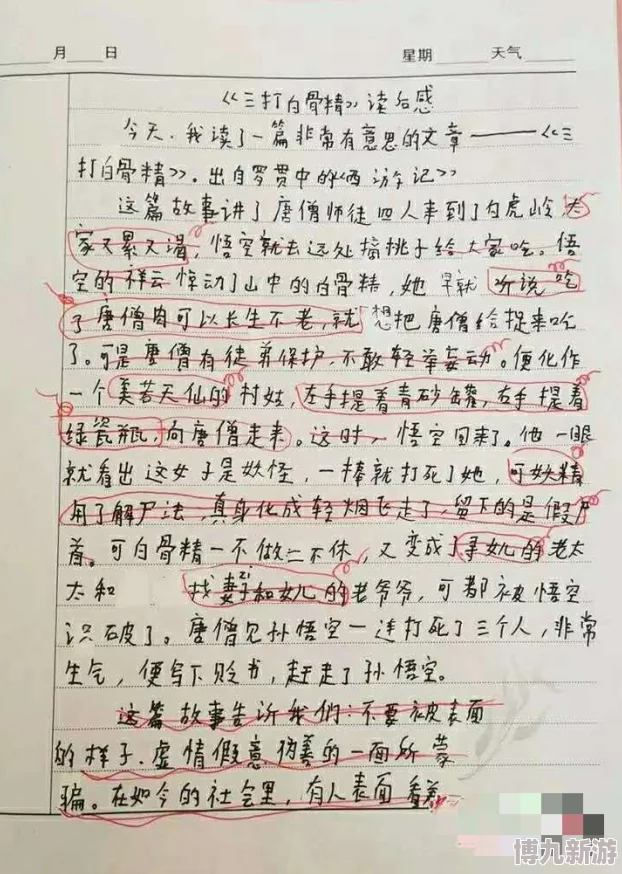 月 日 星期 天气
《三打白骨精》读后感
今天,我读了一篇非常有意思的文章——《三
打白骨精》.出自罗贯中的《西游记》
这篇故事讲了唐僧师徒四人来到了白虎岭,大
家又累又渴,悟空就去远处摘桃子给大家吃。悟
空的祥云惊动了山中的白骨精,她早就听说吃
了唐僧肉可以长生不老,就想把唐僧给捉来吃
了。可是唐僧有徒弟保护,不敢轻举妄动。便化作
一个美若天仙的村姑,左手提着青砂罐,右手提着
绿瓷瓶,向唐僧走来。这时,悟空回来了。他一眼
就看出这女子是妖怪,一棒就打死了她,可妖精
用了解尸法,真身化成轻烟飞走了,留下的是假尸
首。可白骨精一不做二不休,又变成了寻女儿的老太
太和 找妻子和女儿的老爷爷,可都被悟空
识破了。唐僧见孙悟空一连打死了三个人,非常
生气,便写下贬书,赶走了孙悟空。
这篇故事告诉我们:不要被表面
的样子.虚情假意伪善的一面所蒙
骗。在如今的社会里,有人表面看着
博九新游